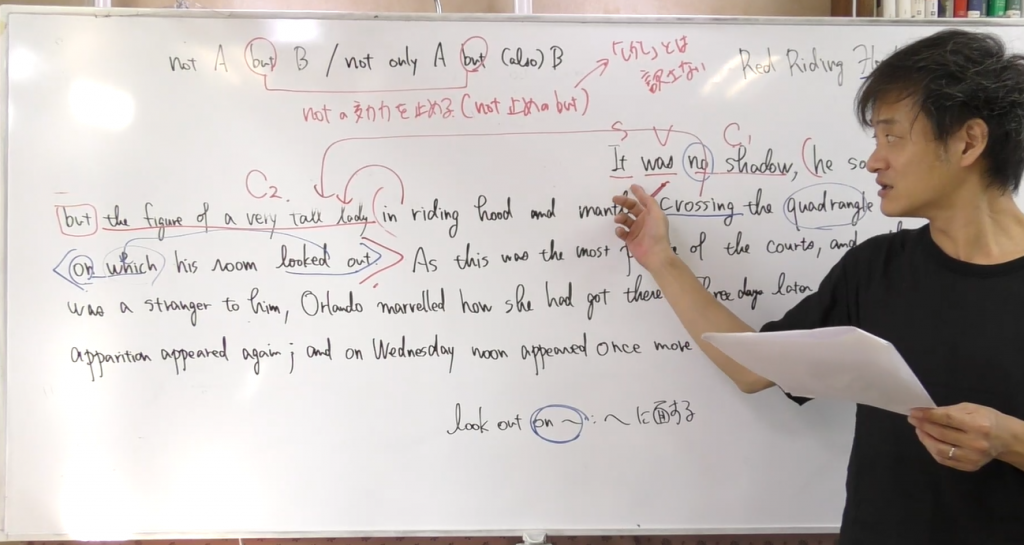 not A but B / not only A but (also) B
「しかし」とは
訳さない
Red Riding
not の効力を止める (not 止めの but)
S V C₁
It was no shadow, he
C₂
but the figure of a very tall lady in riding hood and crossing the quadrangle
on which his room looked out As this was the most of the courts, and
was a stranger to him, Orlando marvelled how she had got there Three days later
apparition appeared again; and on Wednesday noon appeared once more
look out on ～: ～に面する